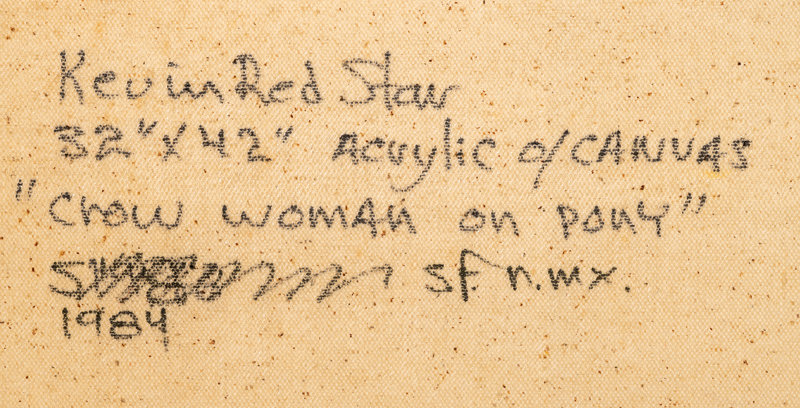 Kevin Red Star
32" x 42" Acrylic o/CANVAS
"Crow woman on pony"
SF n.mx.
1984